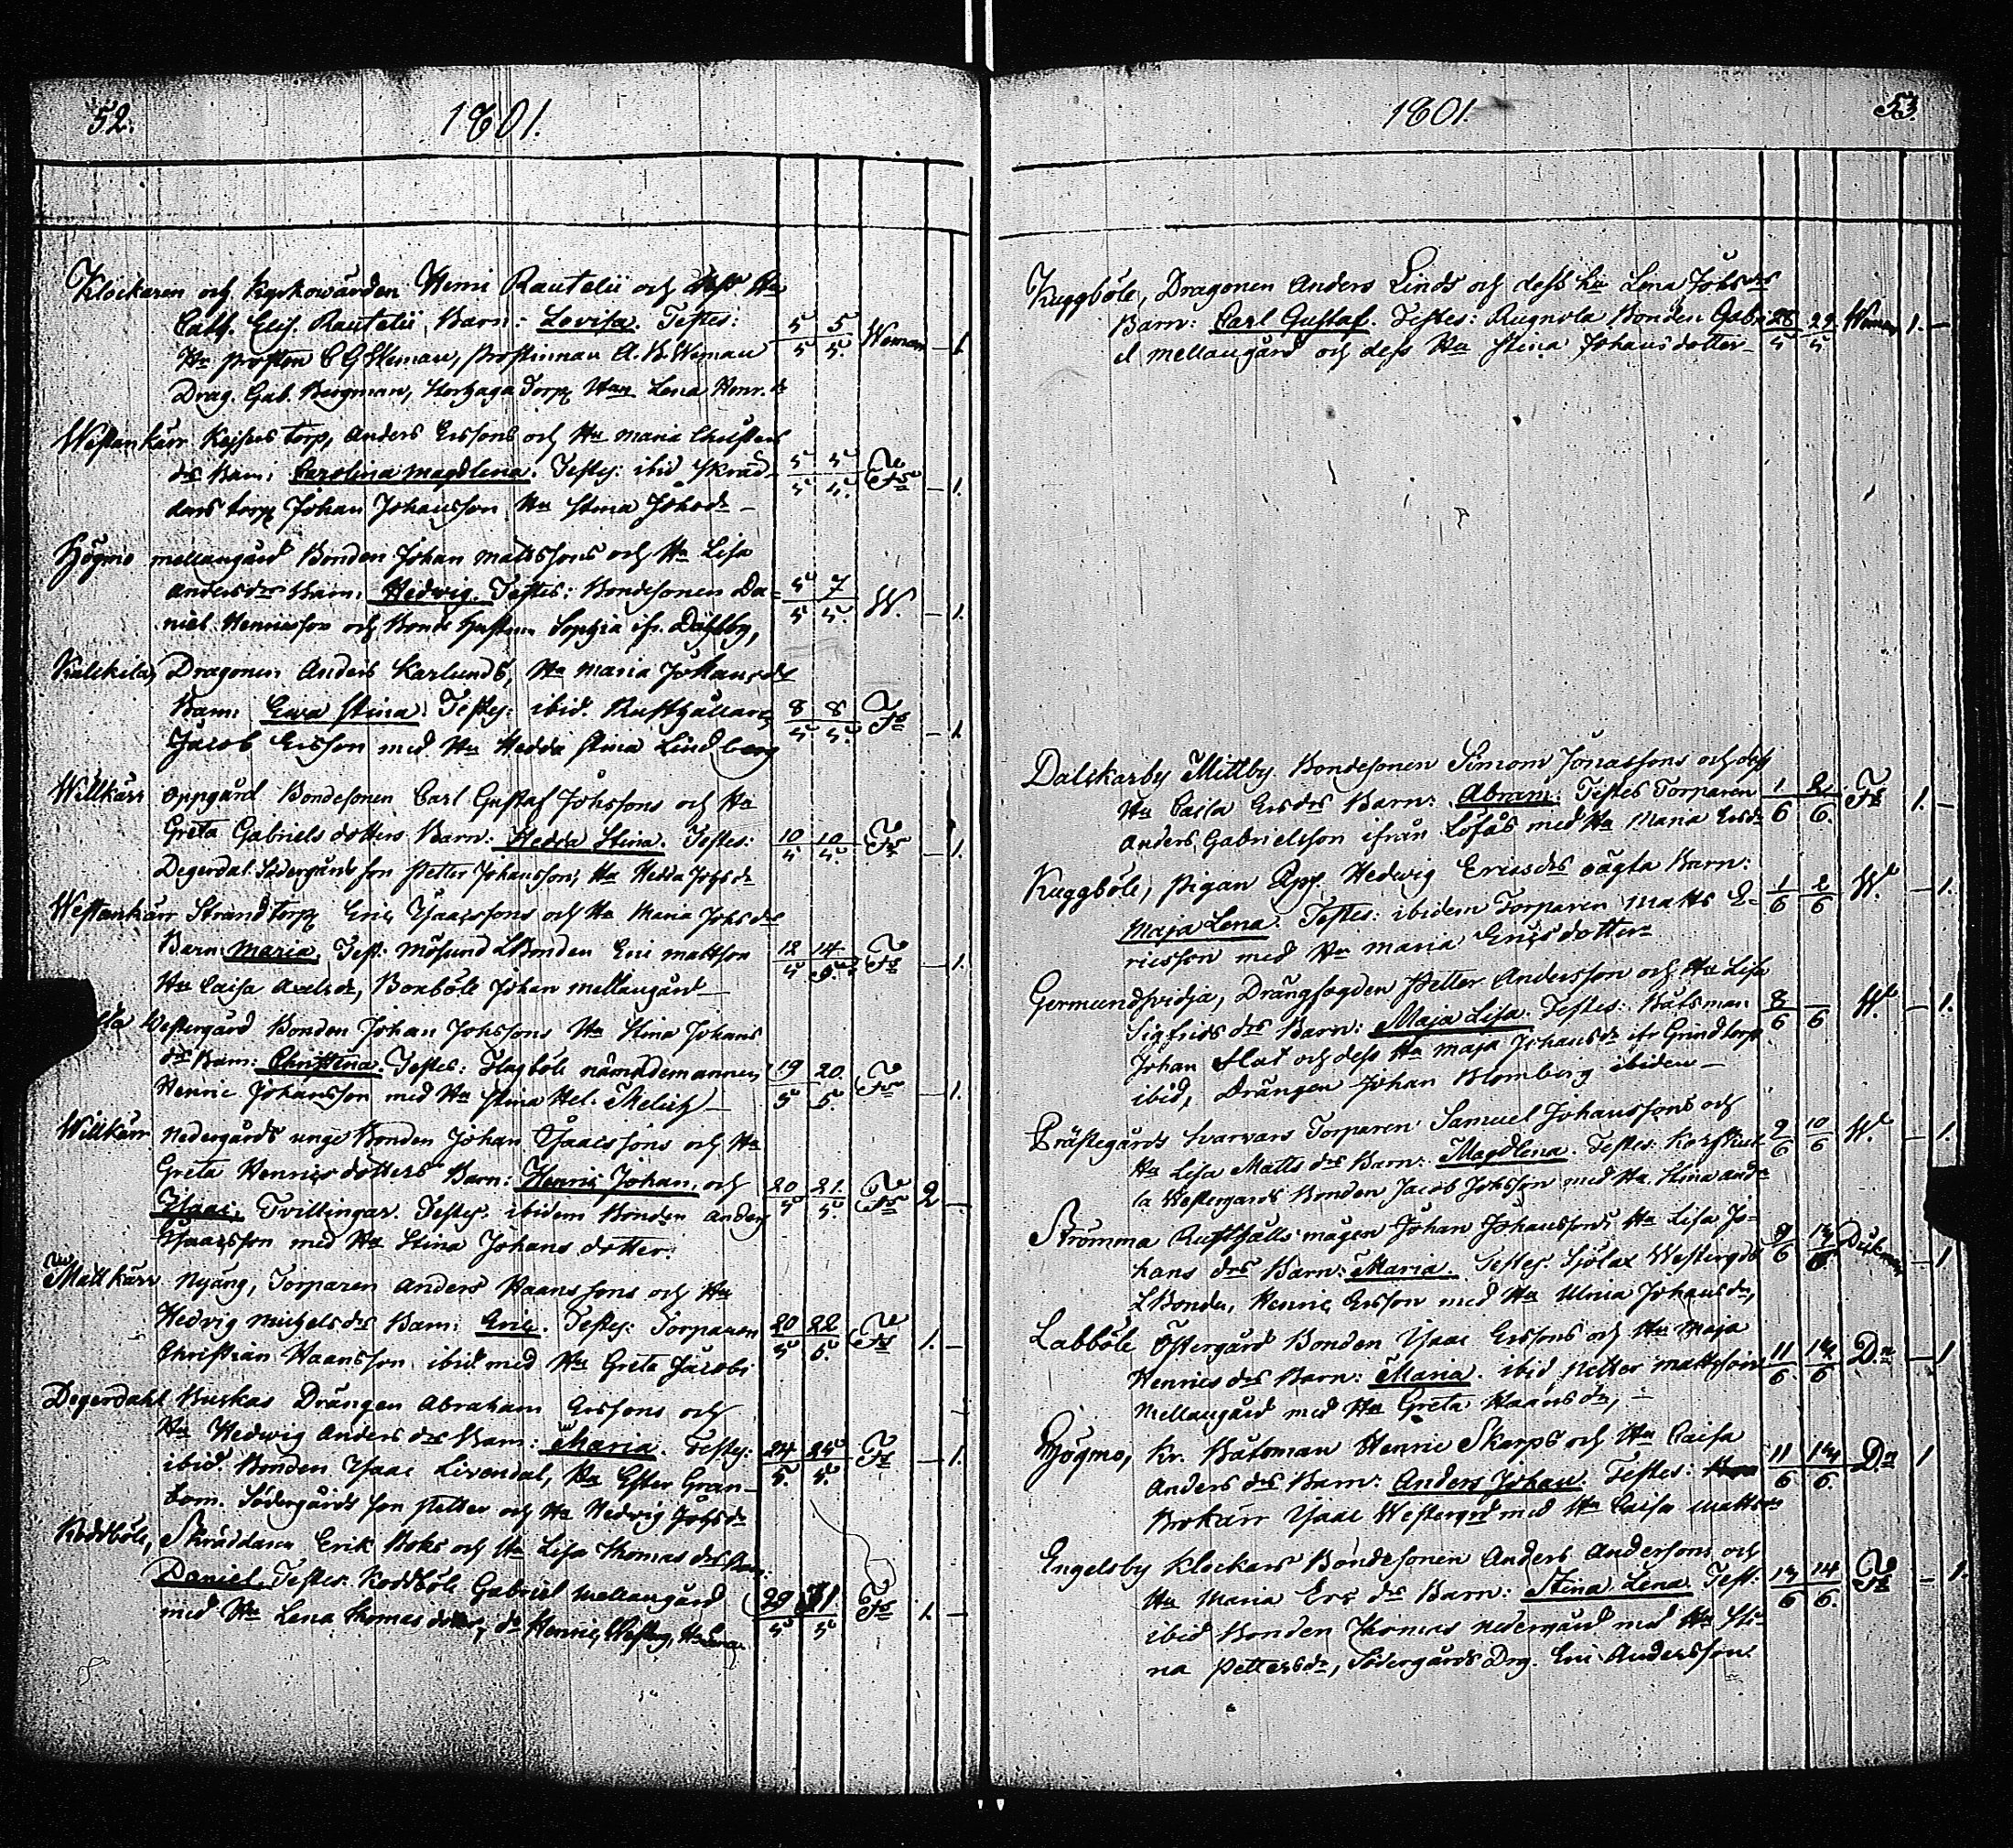 52. 1801.
Klockaren och Kyrkowärden Henri Rautelii och dess Hu
Cath. Elis. Rautelii Barn: Lovisa. Testes: 5/5 5/5. Weman — 1
Hr Prosten C G Weman, Prostinnan A. B. Weman
Drag. Gab. Bergman, Torp Hu Lena Henr. dr
Westankärr Kejsars torp, Anders Erssons och Hu Maria Christers
drs Barn: Carolina Magdlena. Testes: ibid Skräd- 5/5 5/5. Fs — 1.
dars torp Johan Johansson Hu Stina Johsdr —
Högmo mellangård Bonden Johan Mattssons och Hu Lisa
Andersdrs Barn: Hedwig. Testes: Bondesonen Da= 5/5 7/5. W. — 1.
niel Henricsson och Bonde Hustrun Sophia ifr. Dahlby,
Kalkila, Dragonen Anders Karlunds, Hu Maria Johansdrs
Barn: Ewa Stina. Testes: ibid. Rusthållaren 8/5 8/5. Fs — 1
Jacob Ersson med Hu Hedda Stina Lindberg
Willkärr Oppgård Bondesonen Carl Gustaf Johssons och Hu
Greta Gabriels dotters Barn: Hedda Stina. Testes: 10/5 10/5. Fs — 1.
Degerdal Södergårds son Petter Johansson, Hu Hedda Johsdr
Westankärr Strandtorp Eric Isaacssons och Hu Maria Johsdrs
Barn Maria. Test: Mösund LBonden Eric Mattson 12/5 14/5. Fs — 1.
Hu Caisa Axelsdr, Boxböle Johan mellangård —
Westergård Bonden Johan Johssons Hu Stina Johans
drs Barn: Christina. Testes: Flagböle nämndemannen 19/5 20/5. Fs — 1.
Henric Johansson med Hu Stina Hel. Melich —
Willkärr Nedergårds unge Bonden Johan Isaacssons och Hu
Greta Henricsdotters Barn: Henric Johan, och 20/5 21/5. Fs 2 —
Isaac, Tvillingar. Testes: ibidem Bonden Anders
Isaacsson med Hu Stina Johans dotter.
Mattkärr Nyäng, Torparen Anders Haanssons och Hu
Hedvig Michelsdrs Barn: Eric. Testes: Torparen 20/5 22/5. Fs 1. —
Christian Haansson ibid med Hu Greta Jacobs
Degerdahl Buskas Drängen Abraham Erssons och
Hu Hedwig Anders drs Barn: Maria. Testes: 24/5. 25/5 Fs — 1.
ibid. Bonden Isaac Livendal, Hu Ester Gran-
bom. Södergårds son Petter och Hu Hedwig Johsdr
Koddböle, Skräddaren Erik Boks och Hu Lisa Thomas drs Barn:
Daniel. Testes: Koddböle Gabriel mellangård 29/5 31/5 Fs 1. —
med Hu Lena Thomas dotter, do Henric Westerg, Hu Lena
1801. 53.
Kuggböle, Dragonen Anders Linds och dess Hu Lena Johsdrs
Barn: Carl Gustaf. Testes: Rugnola Bonden Gabri 28/5 29/5. Weman 1. —
el mellangård och dess Hu Stina Johansdotter —
Dalskarby Mittby Bondesonen Simon Jonassons och dess
Hu Caisa Ersdrs Barn: Abram. Testes Torparen 1/6 2/6. Fs 1. —
Anders Gabrielsson ifrån Löfås med Hu Maria Ersdr
Kuggböle, Pigan Hedwig Ericsdrs oägta Barn: 1/6 2/6 W. — 1.
Maja Lena. Testes: ibidem Torparen Matts E-
ricsson med Hu Maria Ericsdotter
Germundsvidja, Drängfogden Petter Andersson och Hu Lisa
Sigfrids drs Barn: Maja Lisa. Testes: Båtsman 8/6 /6 W. — 1.
Johan Flat och dess Hu Maja Johansdr ifr Grindtorp
ibid, Drängen Johan Blomberg ibidem —
Prästegårds Svarvars Torparen Samuel Johanssons och
Hu Lisa Matts drs Barn: Magdlena. Testes: 9/6 10/6 W. — 1.
la Westergårds Bonden Jacob Johsson med Hu. Stina Andr
Strömma Rusthålls mågen Johan Johanssons Hu Lisa Jo-
hans drs Barn: Maria. Testes: Sjölax Westergds 9/6 13/6 — 1
LBonden, Henric Ersson med Hu Ulrica Johansdr,
Labböle Östergård Bonden Isaac Erssons och Hu Maja
Henricsdrs Barn: Maria. ibid Petter Mattsson 11/6. 14/6 Dn — 1
Mellangård med Hu Greta Haansdr, —
Högmo, Kr. Båtsman Henric Skarps och Hu Caisa
Anders drs Barn: Anders Johan. Testes: 11/6 14/6. Dn 1
Brokärr Isaac Westergrd med Hu Caisa Mattsdr
Engelsby Klockars Bondesonen Anders Anderssons och
Hu Maria Ers dr Barn: Stina Lena Test: 13/6 14/6. Fs — 1.
ibid Bonden Thomas Nedergård med Hu Sti-
na Pettersdr, Södergårds Drg. Eric Andersson.